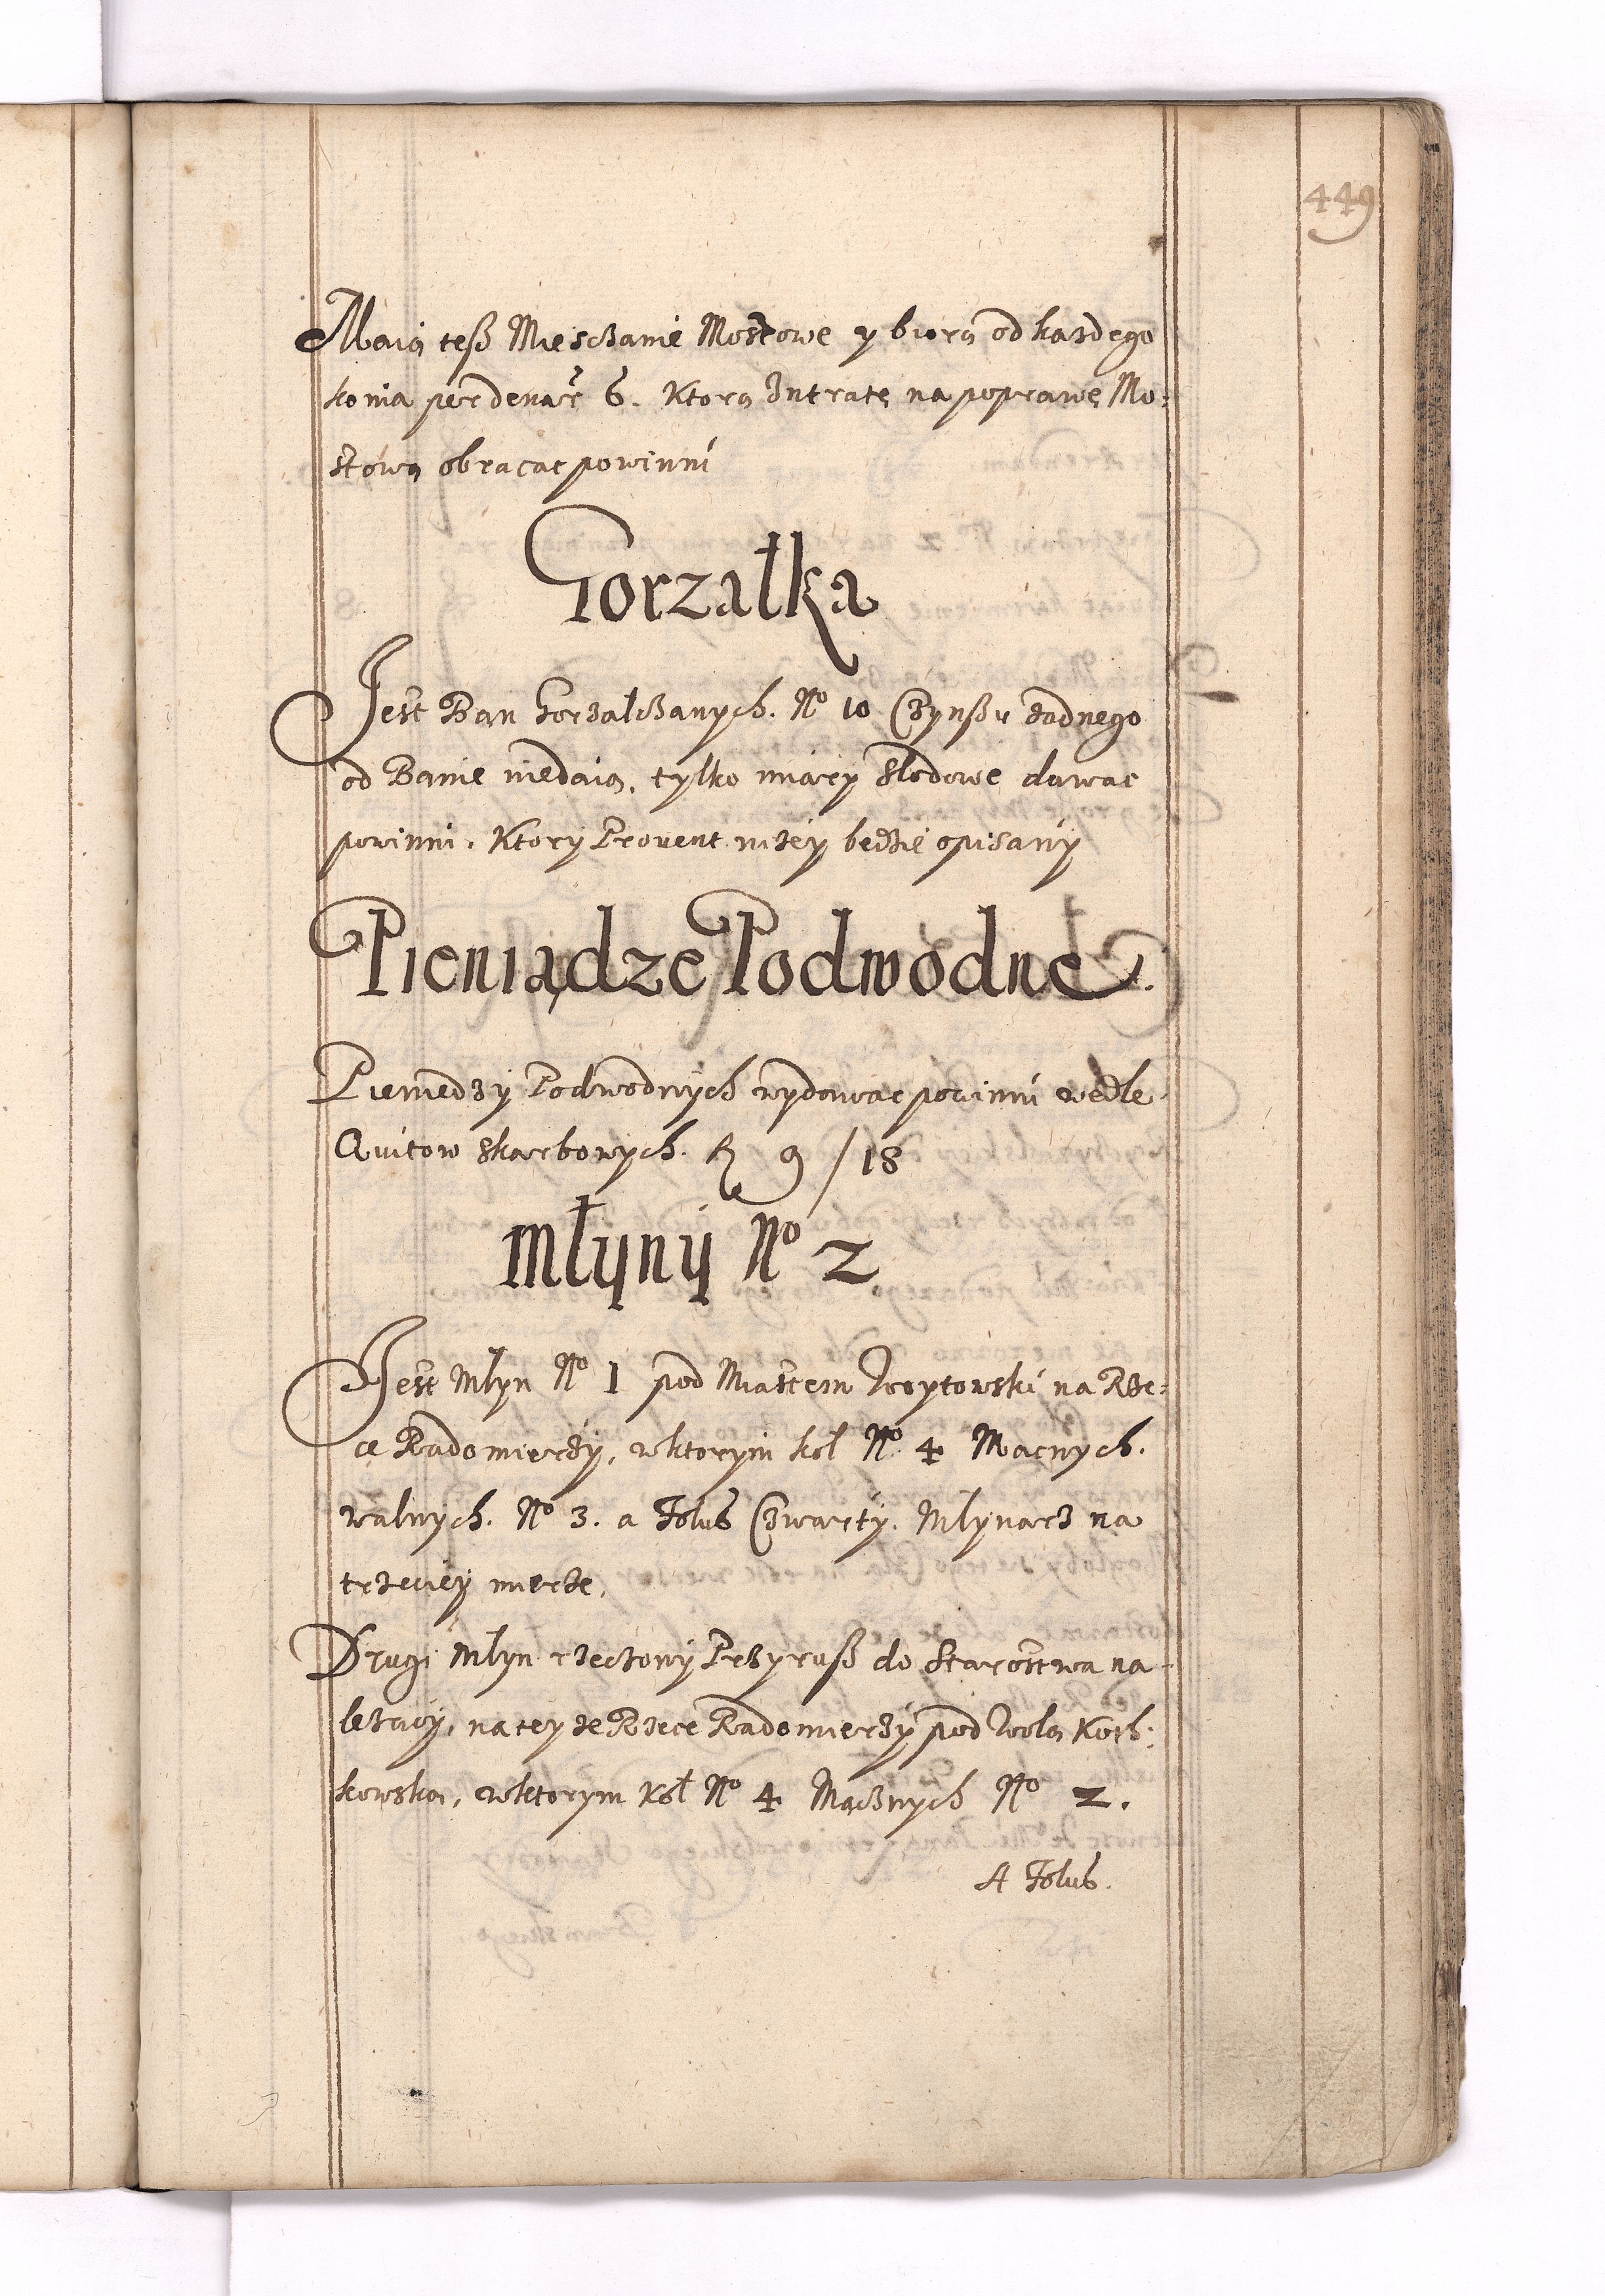 449
Maią teß Miesczanie Mostowe y biorą od kazdego
konia per denar 6. Ktorą Intratę na poprawę Mo:
stową obracac powinni
Gorzałka
Jest Ban Gorzalczanych. No 10 Czynßu zadnego
od Banie niedaią, tylko miary słodowe dawac
powinni. Ktory Prouent nizey bedzie opisany
Pieniądze Podwodne.
Pieniedzy Podwodnych wydawac powinni wedle
Quitow skarbowych. fl 9 / 18
Młyny No 2
Jest Młyn No 1 pod Miastem Woytowski na Rze:
ce Radomierzy, wktorym koł No 4 Mącnych.
walnych. No 3. a Folus Czwarty. Młynarz na
trzeciey mierze.
Drugi Młyn rzeczony Przyruß do Starostwa na
lezący, na tey ze Rzece Radomierzy pod Wolą Kosh:
kowską, wktorym koł No 4 Mącznych No 2.
A Folus.